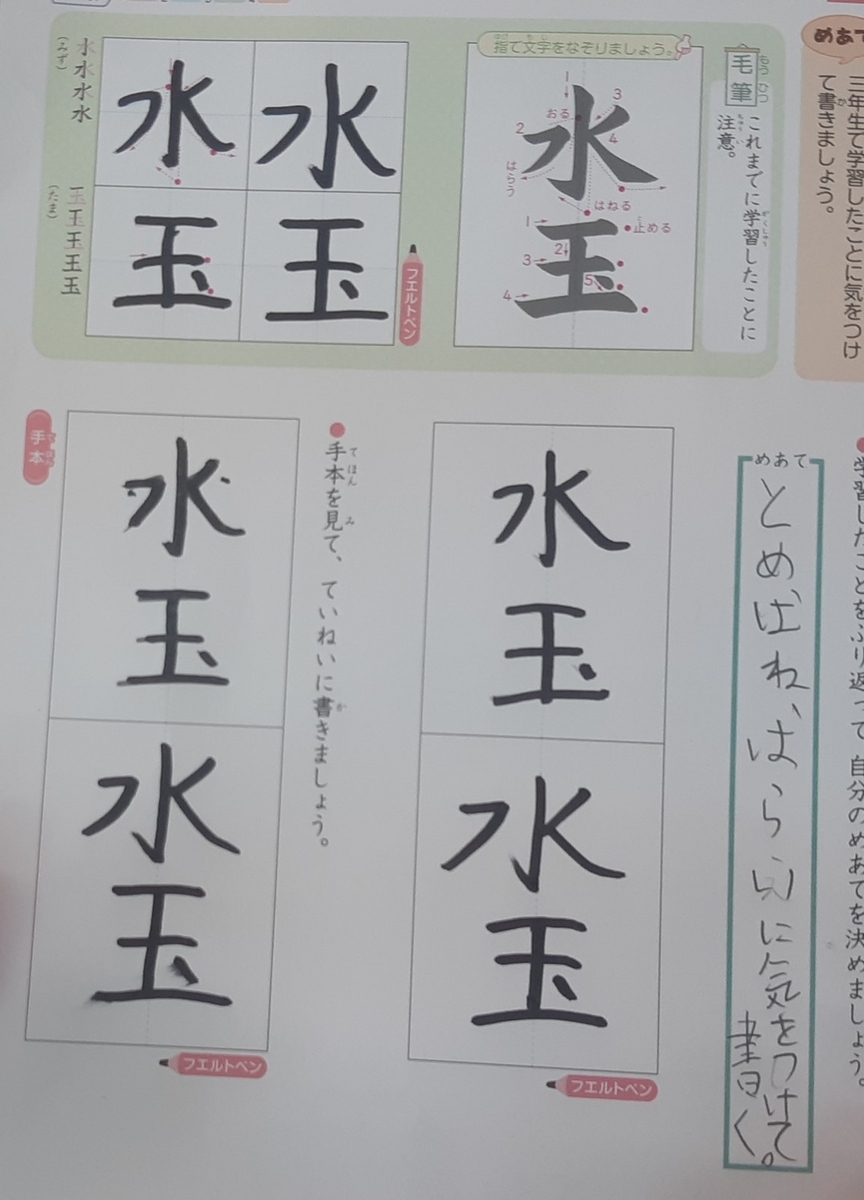 めあて
三年生で学習したことに気をつけ
て書きましょう。
毛筆
これまでに学習したことに
注意。
指で文字をなぞりましょう。
水玉
1
2
3
4
おる
はらう
はねる
1
2
3
4
5
止める
フエルトペン
水
玉
水
玉
水水水水
(みず)
玉玉玉玉玉
(たま)
学習したことをふり返って、自分のめあてを決めましょう。
めあて
とめ、はね、はらいに気をつけて
書く。
水玉
水玉
フエルトペン
手本を見て、ていねいに書きましょう。
手本
水玉
水玉
フエルトペン